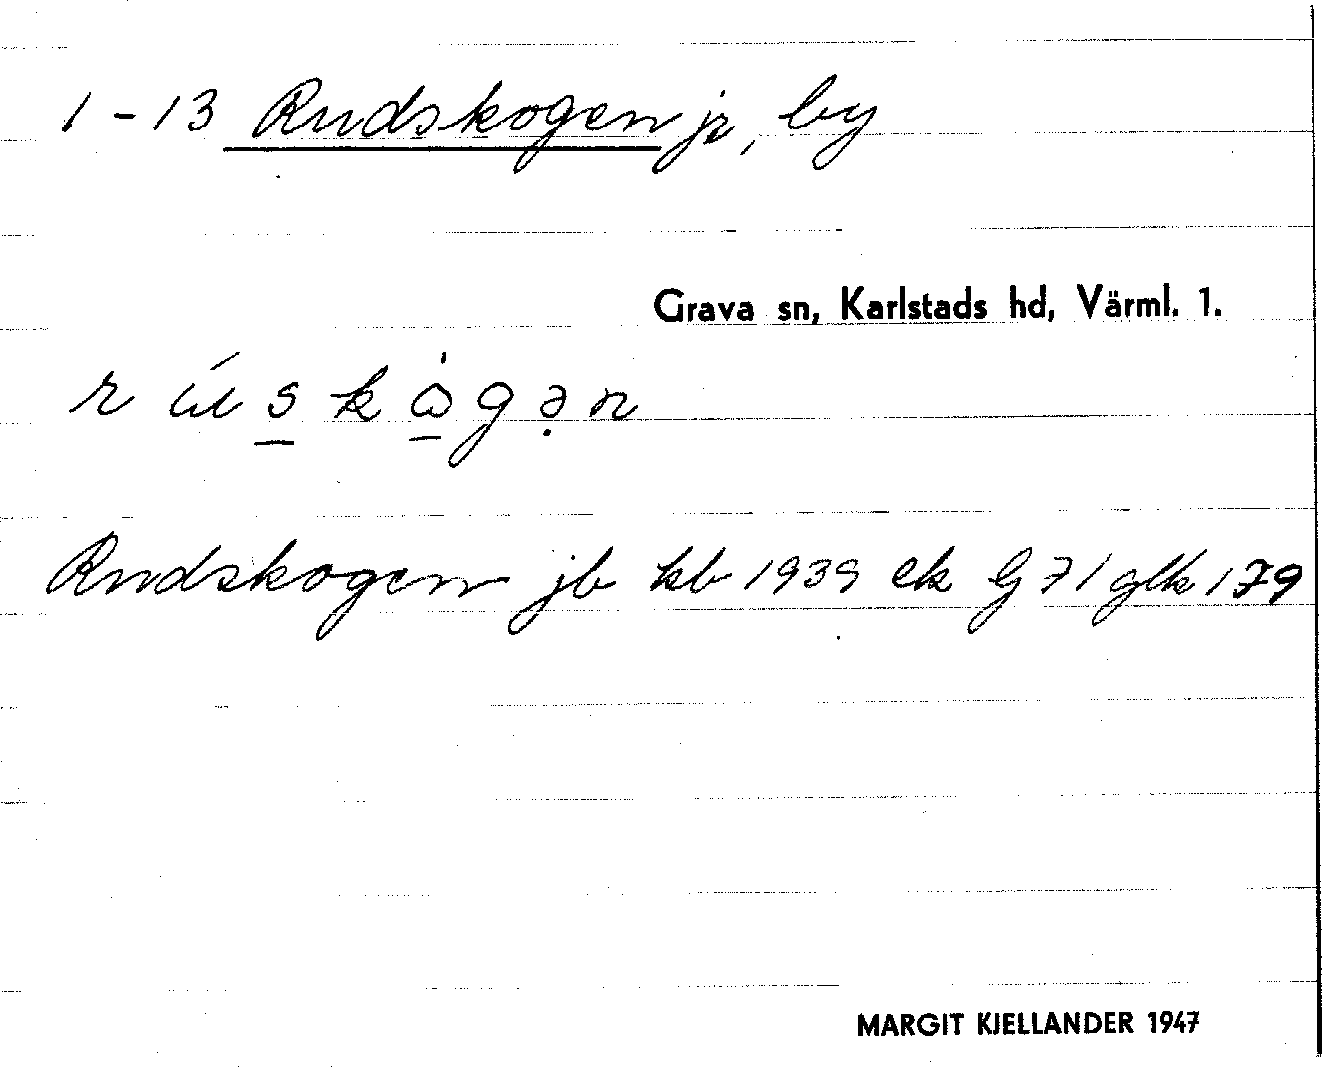 1-13 Rudskogen jr, by
Grava sn, Karlstads hd, Värml. 1.
r ú s k ò g ə n
Rudskogen jb kb 1939 ek G 71 glk 179
MARGIT KJELLANDER 1947